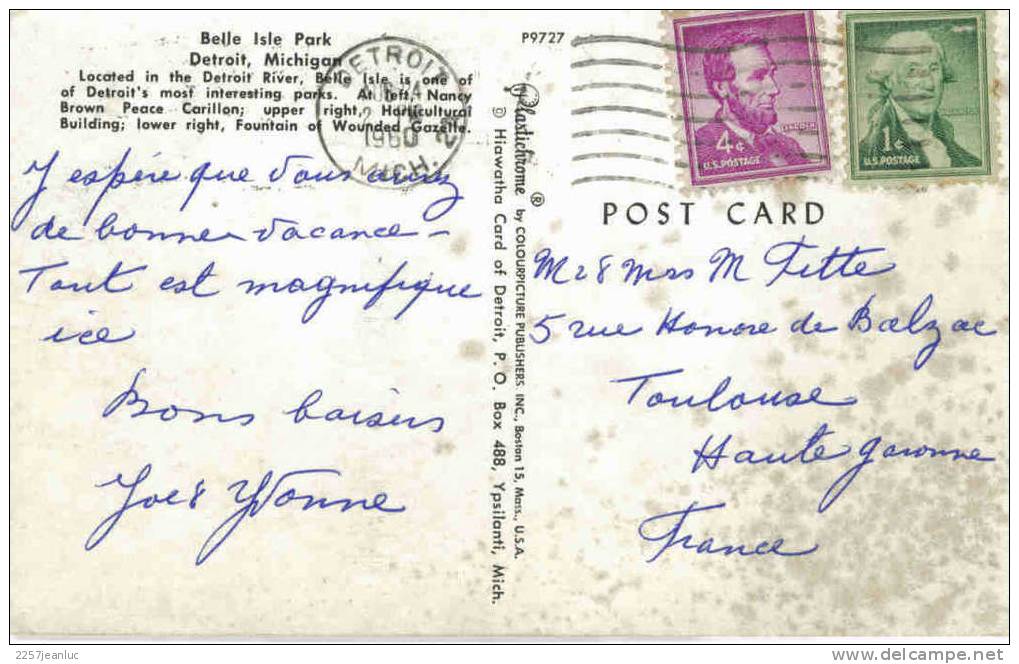 Belle Isle Park
Detroit, Michigan
Located in the Detroit River, Belle Isle is one of
of Detroit's most interesting parks. At left, Nancy
Brown Peace Carillon; upper right, Horticultural
Building; lower right, Fountain of Wounded Gazelle.
DETROIT
1960
MICH.
J espère que vous aurez
de bonne vacance –
Tout est magnifique
ice
Bons baisers
Joe & Yvonne
Plastichrome ® by COLOURPICTURE PUBLISHERS INC., Boston 15, Mass., U.S.A.
© Hiawatha Card of Detroit, P. O. Box 488, Ypsilanti, Mich.
P9727
4¢
U.S. POSTAGE
1¢
U.S. POSTAGE
POST CARD
Mr & Mrs M Fitte
5 rue Honore de Balzac
Toulouse
Haute garonne
France
2257jeanluc
www.delcampe.net